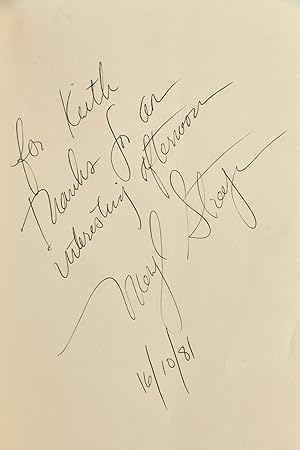 for Keith
Thanks for an
interesting afternoon
Meryl Streep
16/10/81